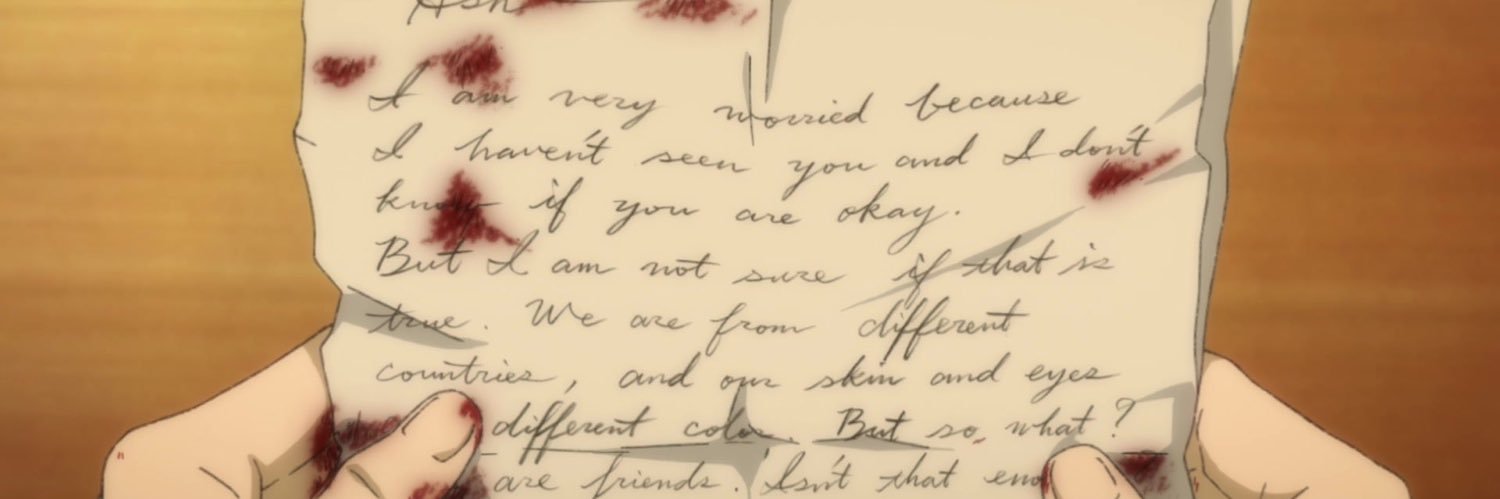 Ash
I am very worried because
I haven't seen you and I don't
know if you are okay.
But I am not sure if that is
true. We are from different
countries, and our skin and eyes
different color. But so what?
are friends. Isn't that